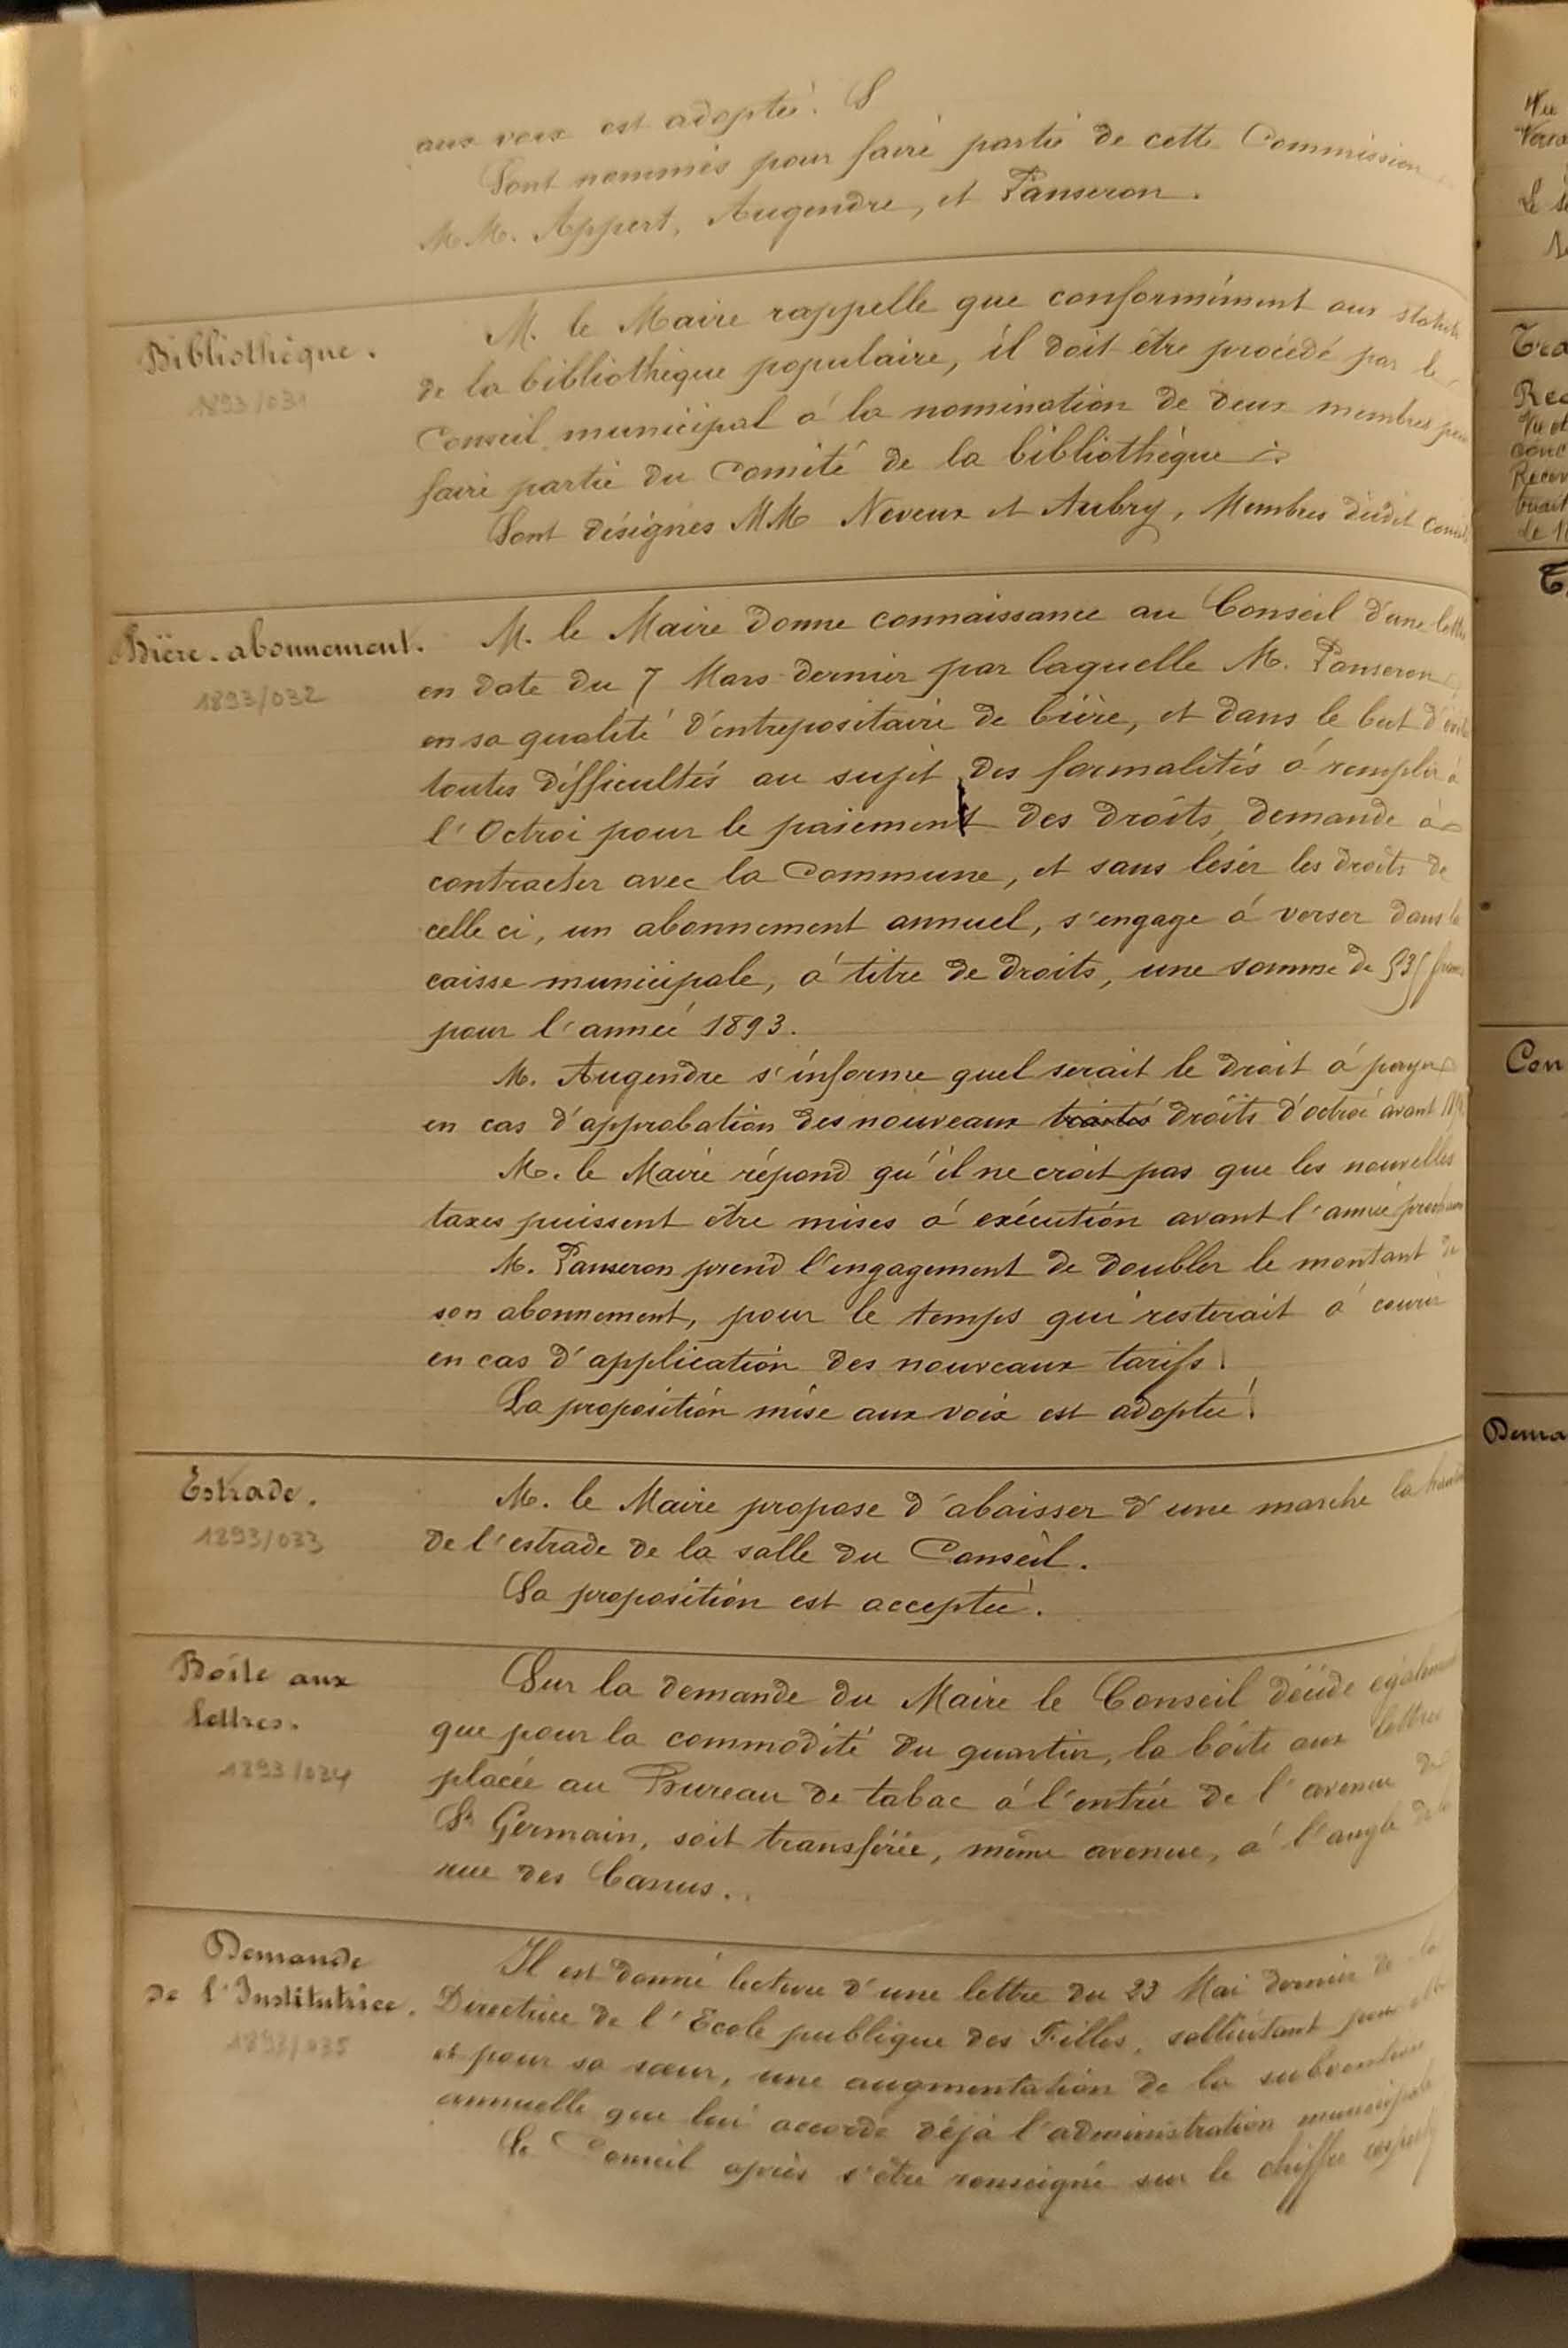 aux voix est adoptée.
Sont nommés pour faire partie de cette Commission
MM. Appert, Augendre, et Panseron.
Bibliothèque.
1893/031
M. le Maire rappelle que conformément aux statuts
de la bibliothèque populaire, il doit être procédé par le
Conseil municipal à la nomination de deux membres pour
faire partie du Comité de la bibliothèque
Sont désignés MM Neveux et Aubry, Membres dudit Conseil
Bière. abonnement.
1893/032
M. le Maire donne connaissance au Conseil d'une lettre
en date du 7 Mars dernier par laquelle M. Panseron
en sa qualité d'entrepositaire de bière, et dans le but d'éviter
toutes difficultés au sujet des formalités à remplir à
l'Octroi pour le paiement des droits, demande à
contracter avec la Commune, et sans léser les droits de
celle ci, un abonnement annuel, s'engage à verser dans la
caisse municipale, à titre de droits, une somme de 535 francs
pour l'année 1893.
M. Augendre s'informe quel serait le droit à payer
en cas d'approbation des nouveaux traités droits d'octroi avant
M. le Maire répond qu'il ne croit pas que les nouvelles
taxes puissent être mises à exécution avant l'année prochaine
M. Panseron prend l'engagement de doubler le montant de
son abonnement, pour le temps qui resterait à courir
en cas d'application des nouveaux tarifs.
La proposition mise aux voix est adoptée.
Estrade.
1893/033
M. le Maire propose d'abaisser d'une marche la hauteur
de l'estrade de la salle du Conseil.
La proposition est acceptée.
Boîte aux
lettres.
1893/034
Sur la demande du Maire le Conseil décide également
que pour la commodité du quartier, la boîte aux lettres
placée au Bureau de tabac à l'entrée de l'avenue de
St Germain, soit transférée, même avenue, à l'angle de la
rue des Carrus.
Demande
de l'Institutrice.
1893/035
Il est donné lecture d'une lettre du 23 Mai dernier de la
Directrice de l'Ecole publique des Filles, sollicitant pour elle
et pour sa sœur, une augmentation de la subvention
annuelle que lui accorde déjà l'administration municipale
Le Conseil après s'être renseigné sur le chiffre respectif
Con